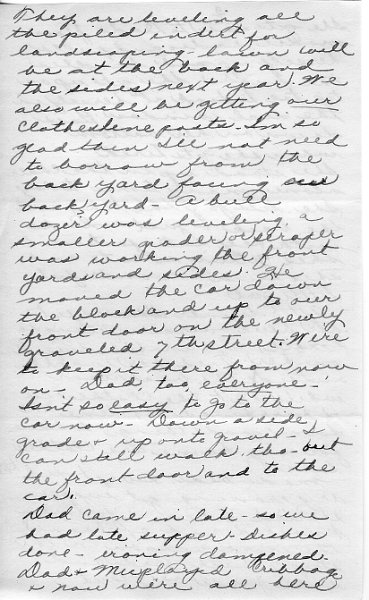 They are leveling all
the piled in dirt for
landscaping - lawn will
be at the back and
the sides next year. We
also will be getting our
clothesline posts. I'm so
glad then I'll not need
to borrow from the
back yard facing our
back yard - A bull
dozer was leveling a
smaller grader or scraper
was working the front
yards and sides. He
moved the car down
the block and up to our
front door on the newly
graveled 7th street. We're
to keep it there from now
on - Dad, too, everyone -
Isn't so easy to go to the
car now - Down a side
grade & up onto gravel - I
can still walk tho - out
the front door and to the
car.
Dad came in late - so we
had late supper - Dishes
done - ironing dampened -
Dad & played cribbage
& now we're all here